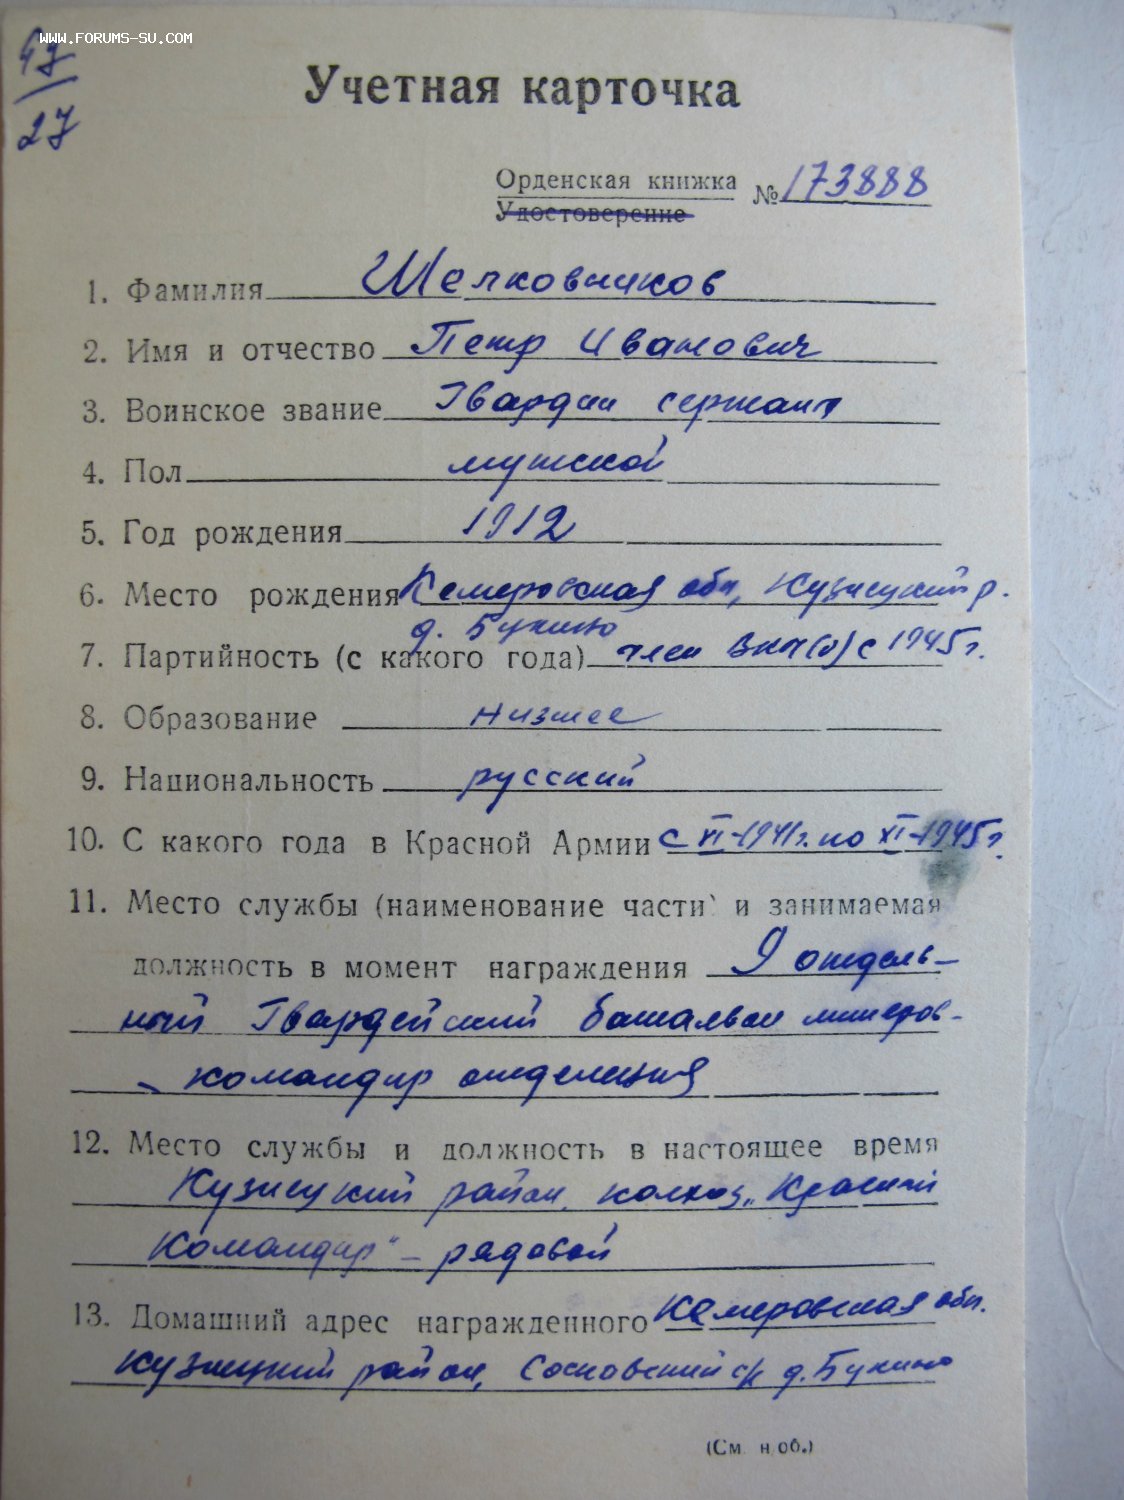 WWW.FORUMS-SU.COM
47
27
Учетная карточка
Орденская книжка
Удостоверение
№ 173888
1. Фамилия Шелковников
2. Имя и отчество Петр Иванович
3. Воинское звание Гвардии сержант
4. Пол мужской
5. Год рождения 1912
6. Место рождения Кемеровская обл, Кузнецкий р.
д. Букино
7. Партийность (с какого года) член ВКП(б) с 1945 г.
8. Образование низшее
9. Национальность русский
10. С какого года в Красной Армии с XI-1941г. по XI-1945 г.
11. Место службы (наименование части) и занимаемая
должность в момент награждения 9 отдель-
ный Гвардейский батальон минеров -
- командир отделения
12. Место службы и должность в настоящее время
Кузнецкий район, колхоз „Красный
Командир" - рядовой
13. Домашний адрес награжденного Кемеровская обл.
Кузнецкий район, Сосновский с/с д. Букино
(См. н об.)